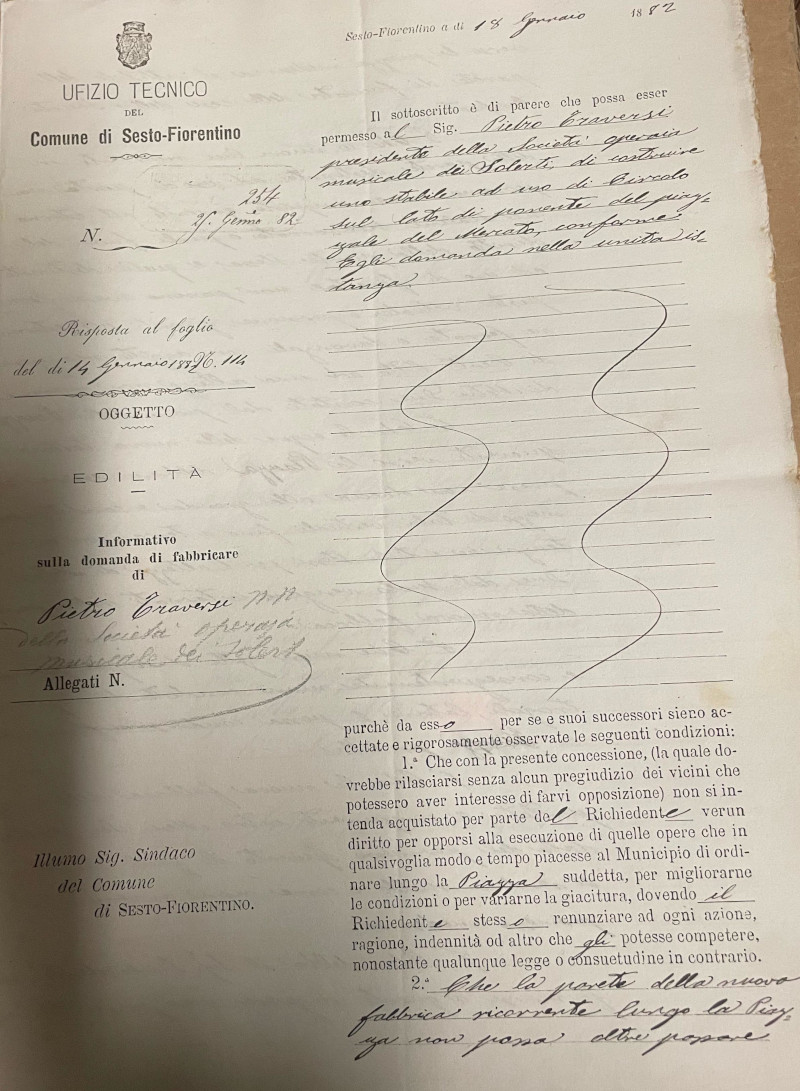 UFIZIO TECNICO
DEL
Comune di Sesto-Fiorentino
N.
254
25. Genno 82
Risposta al foglio
del dì 14 Gennaio 1882 N. 114
OGGETTO
EDILITÀ
Informativo
sulla domanda di fabbricare
di
Pietro Traversi
della Società operaja
musicale dei Solerti
Allegati N.
Illumo Sig. Sindaco
del Comune
di SESTO-FIORENTINO.
Sesto-Fiorentino a dì 18 Gennaio 1882
Il sottoscritto è di parere che possa esser
permesso al Sig. Pietro Traversi
presidente della Società operaia
musicale dei Solerti, di costruire
uno stabile ad uso di Circolo
sul lato di ponente del piaz-
zale del Mercato, conforme
Egli domanda nella unita is-
tanza.
purchè da esso per se e suoi successori sieno ac-
cettate e rigorosamente osservate le seguenti condizioni:
1.ª Che con la presente concessione, (la quale do-
vrebbe rilasciarsi senza alcun pregiudizio dei vicini che
potessero aver interesse di farvi opposizione) non si in-
tenda acquistato per parte del Richiedente verun
diritto per opporsi alla esecuzione di quelle opere che in
qualsivoglia modo e tempo piacesse al Municipio di ordi-
nare lungo la Piazza suddetta, per migliorarne
le condizioni o per variarne la giacitura, dovendo il
Richiedente stesso renunziare ad ogni azione,
ragione, indennità od altro che gli potesse competere,
nonostante qualunque legge o consuetudine in contrario.
2.ª Che la parete della nuova
fabbrica ricorrente lungo la Piaz-
za non possa oltre passare